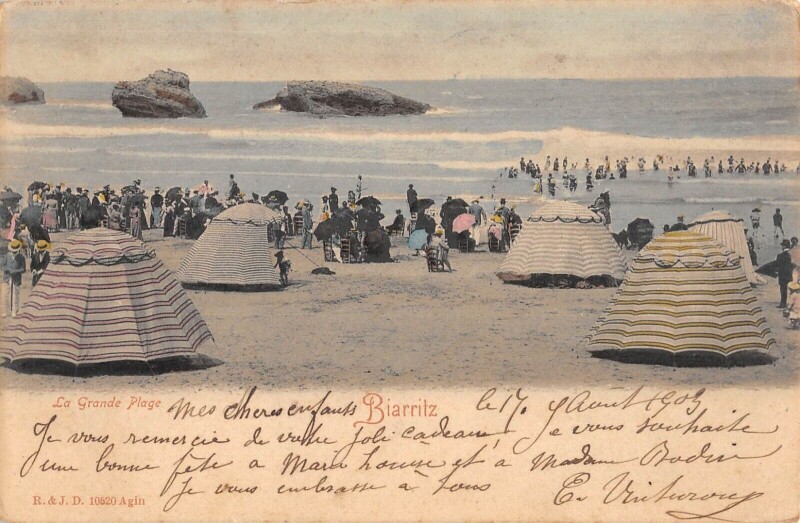 La Grande Plage
Biarritz
Mes cheres enfants le 17 Août 1903
Je vous remercie de votre joli cadeau, Je vous souhaite
une bonne fête a Marie Louise et à Madame Bodin
Je vous embrasse à tous
R. & J. D. 10520 Agin